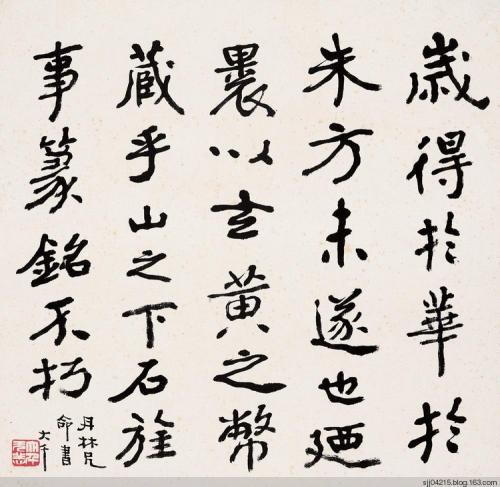 歲得於華於
朱方未遂也廼
裹以玄黃之幣
藏乎山之下石旌
事篆銘不朽
丹林兄
命書
大千
sjj04215.blog.163.com